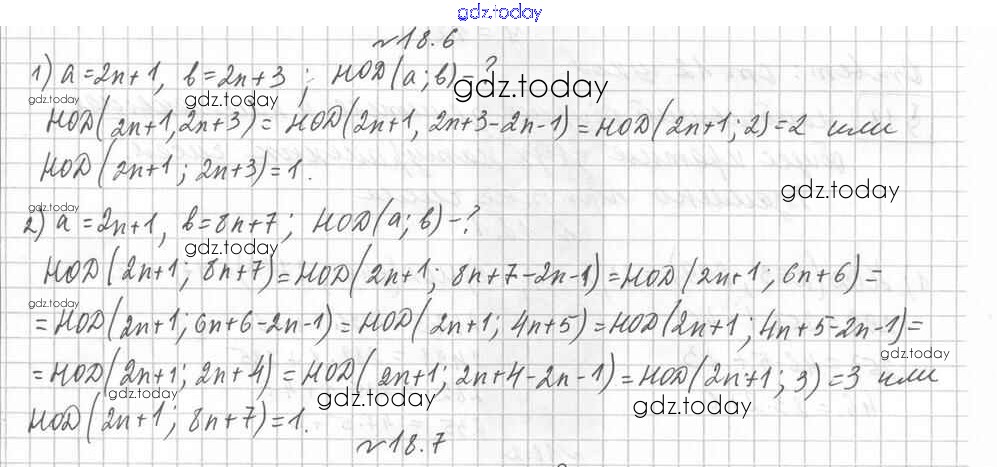 gdz.today
№18.6
1) a=2n+1, b=2n+3; НОД(a;b)-?
gdz.today gdz.today gdz.today
НОД(2n+1,2n+3)= НОД(2n+1, 2n+3-2n-1)=НОД(2n+1;2)=2 или
НОД(2n+1; 2n+3)=1.
gdz.today
gdz.today
2) a=2n+1, b=8n+7; НОД(a;b)-?
gdz.today gdz.today
НОД(2n+1; 8n+7)=НОД(2n+1; 8n+7-2n-1)=НОД(2n+1; 6n+6)=
gdz.today
=НОД(2n+1; 6n+6-2n-1)= НОД(2n+1; 4n+5)=НОД(2n+1; 4n+5-2n-1)=
gdz.today
=НОД(2n+1; 2n+4)= НОД(2n+1; 2n+4-2n-1)=НОД(2n+1; 3)=3 или
gdz.today gdz.today gdz.today
НОД(2n+1; 8n+7)=1.
№18.7